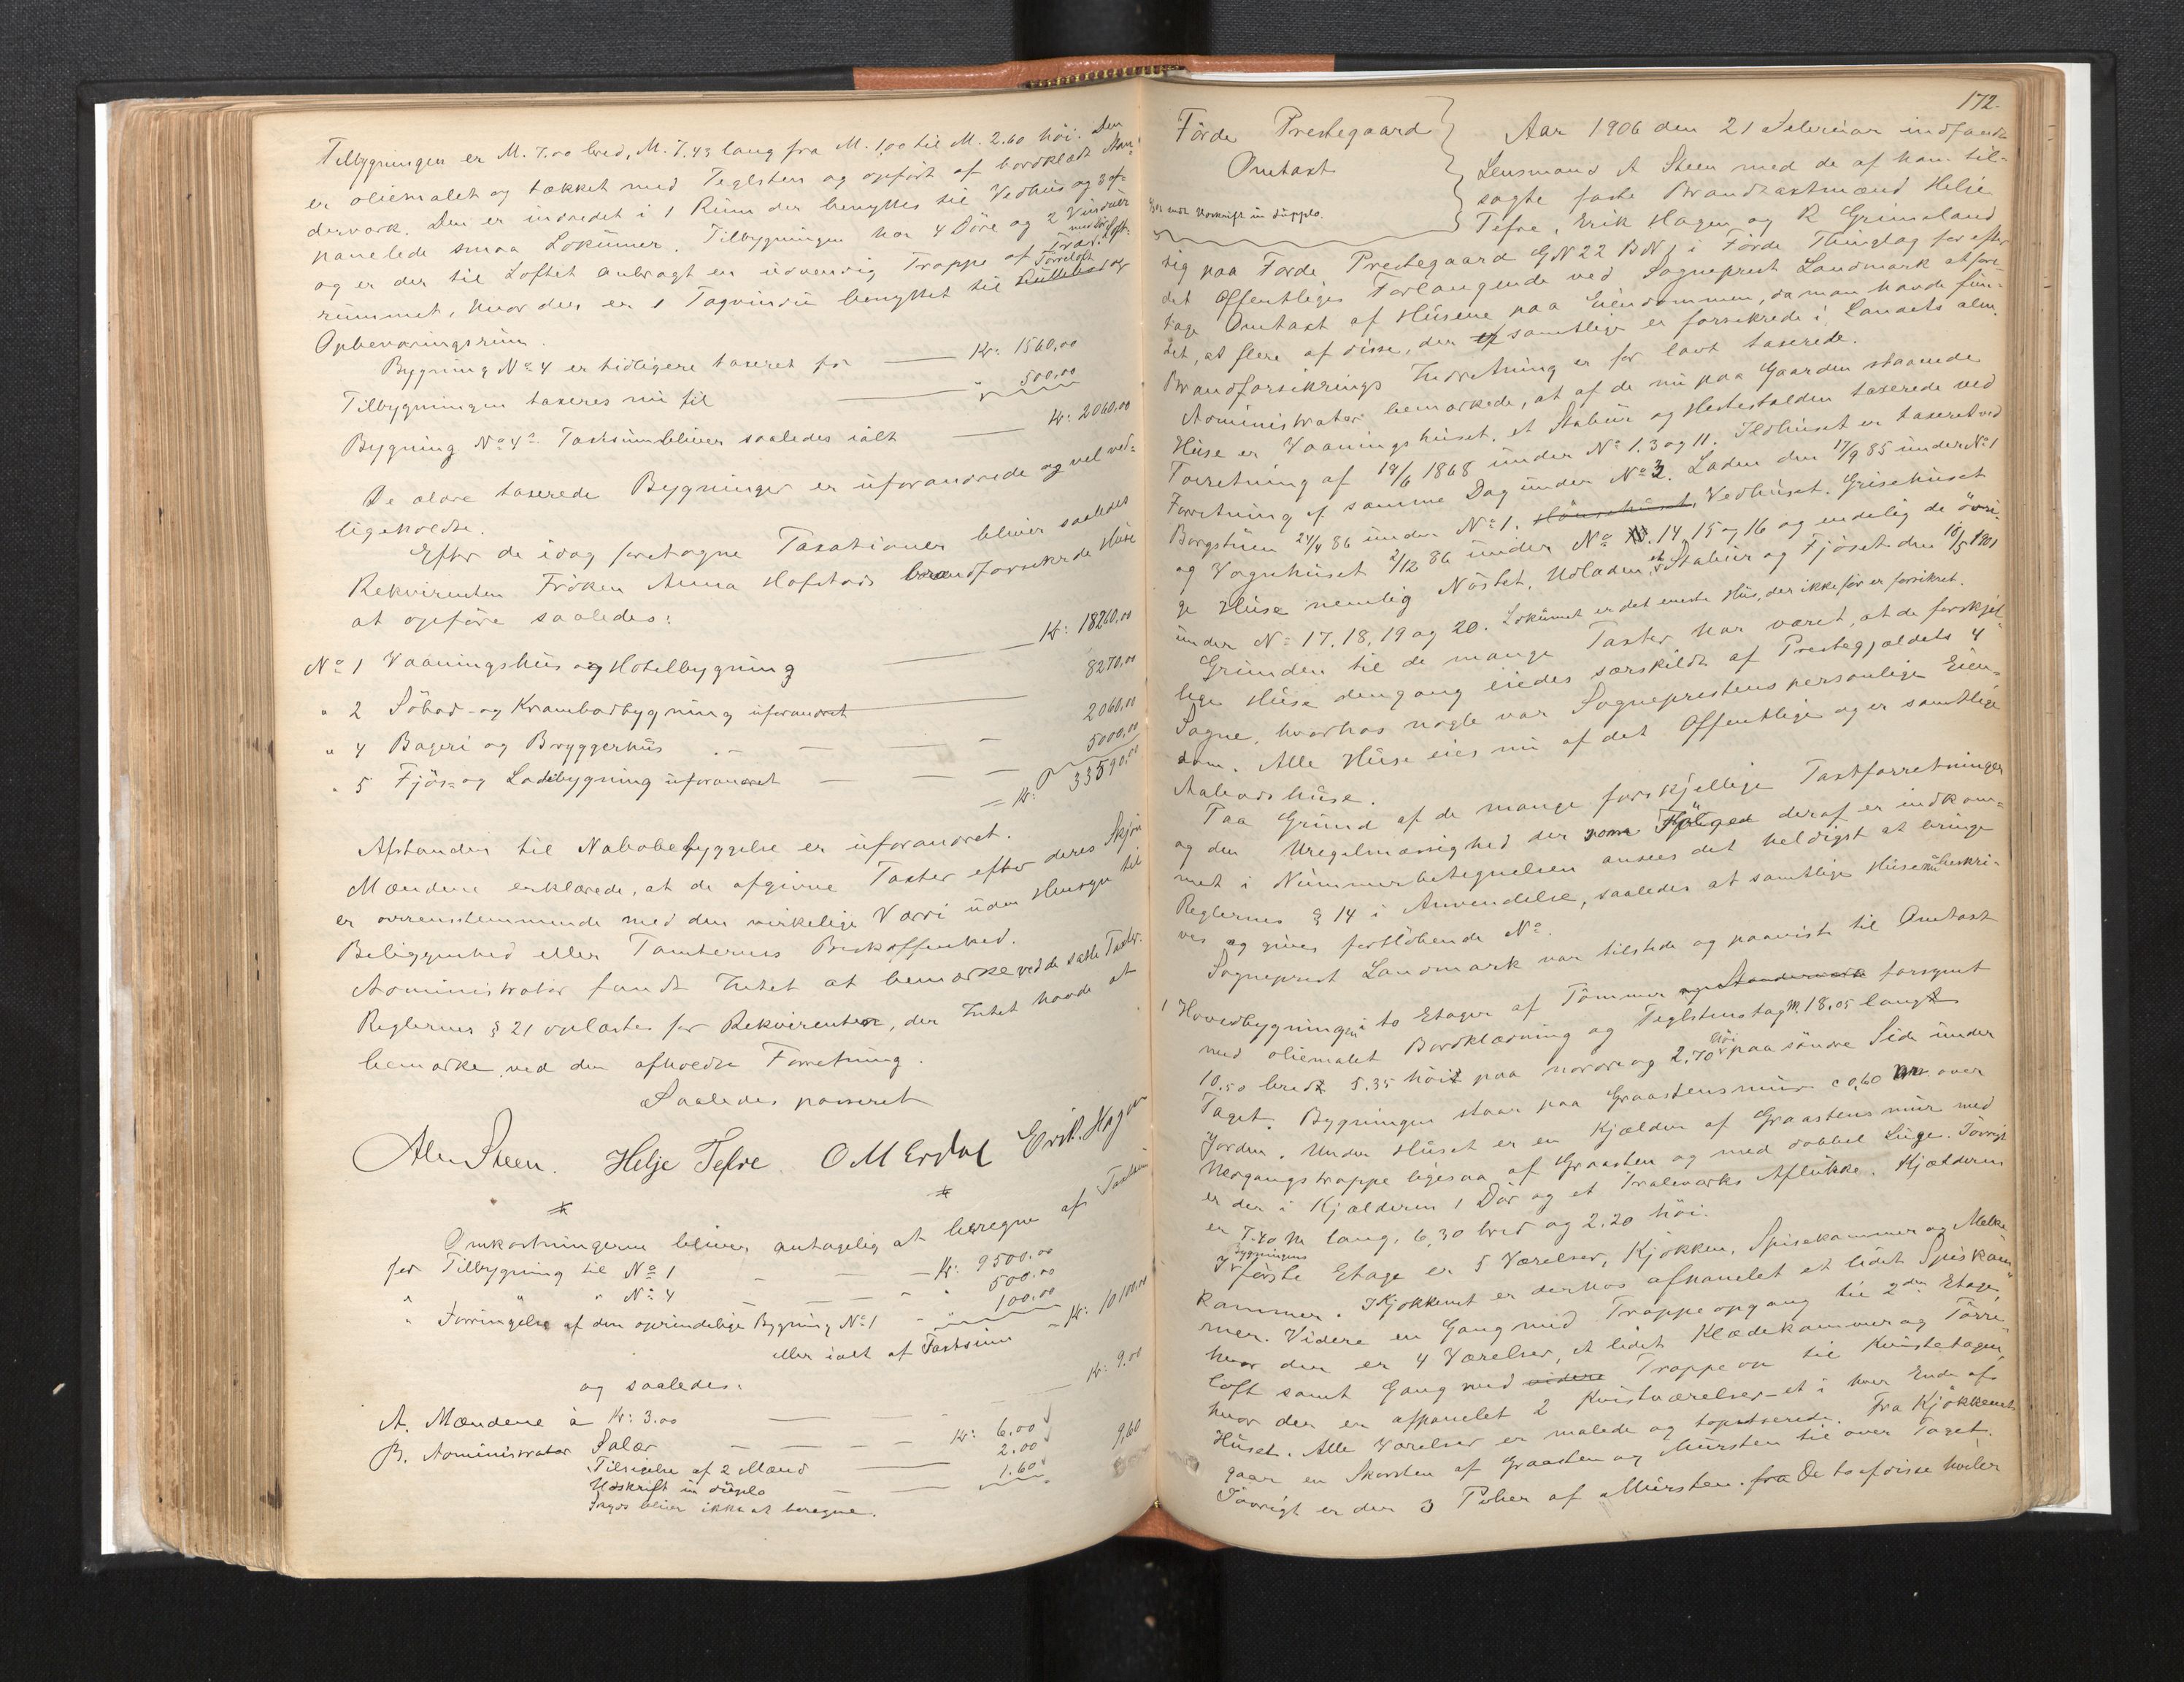 Tilbygningen er M. 7.00 bred, M. 7.43 lang fra M. 1,00 til M. 2.60 høi. Den
er oliemalet og tækket med Teglsten og opført af bordklædt Stan-
derværk. Den er indredet i 1 Rum der benyttes til Vedhus og 3 af-
panelede smaa Lokummer. Tilbygningen har 4 Døre og 2 Vinduer
og er der til Loftet anbragt en udvendig Trappe af Træ. Lofts-
rummet, hvor der er 1 Tagvindu benyttet til Tørreloft og
Opbevaringsrum.
Bygning No 4 er tidligere taxeret for — Kr: 1560,00
Tilbygningen taxeres nu til — " 500.00
Bygning No 4s Taxtsum bliver saaledes ialt — Kr: 2060,00
De ældre taxerede Bygninger er uforandrede og vel ved-
ligeholdte.
Efter de idag foretagne Taxationer bliver saaledes
Rekvirenten Frøken Anna Hofstads brandforsikrede Huse
at opføre saaledes:
No 1 Vaaningshus og Hotelbygning — Kr: 18260,00
" 2 Søbod- og Krambodbygning uforandret — 8270,00
" 4 Bageri og Bryggerhus — 2060,00
" 5 Fjøs- og Ladebygning uforandret — 5000,00
Kr: 33590,00
Afstanden til Nabobebyggelse er uforandret.
Mændene erklærede, at de afgivne Taxter efter deres Skjøn
er overensstemmende med den virkelige Værdi uden Hensyn til
Beliggenhed eller Tomternes Beskaffenhed.
Administrator fandt Intet at bemærke ved de satte Taxter.
Reglernes § 21 oplæstes for Rekvirenten, der Intet havde at
bemærke ved den afholdte Forretning.
Saaledes passeret
Alm Steen. Helje Tefre. O M Erdal Erik. Hagen
Omkostningerne bliver antagelig at beregne af Taxten
for Tilbygning til No 1 — Kr: 9500.00
" " " No 4 — " 500.00
" Forringelse af den oprindelige Bygning No 1 — " 100.00
eller ialt af Taxtsum — Kr: 10100,00
og saaledes:
A. Mændene à Kr: 3.00 — Kr: 9.00
B. Administrator Salær — Kr: 6.00
Tilsigelse af 2 Mænd — 2.00
Udskrift in duplo — 1.60 9,60
Skyds bliver ikke at beregne.
172.
Førde Prestegaard
Omtaxt
Udskrift in duplo.
Aar 1906 den 21 Februar indfandt
Lensmand A Steen med de af ham til-
sagte faste Brandtaxtmænd Helje
Tefre, Erik Hagen og R Grimeland
sig paa Førde Prestegaard GN 22 BN 1 i Førde Thinglag for efter
det Offentliges Forlangende ved Sogneprest Landmark at fore-
tage Omtaxt af Husene paa Eiendommen, da man havde fun-
det, at flere af disse, der samtlige er forsikrede i Landets alm.
Brandforsikrings Indretning er for lavt taxerede.
Administrator bemærkede, at af de nu paa Gaarden staaende
Huse er Vaaningshuset, et Stabur og Hestestalden taxerede ved
Forretning af 19/6 1868 under No 1. 3 og 11. Ildhuset er taxeret ved
Forretning af samme Dag under No 3. Laden den 17/9 85 under No 1
Borgstuen 24/4 86 under No 1. Hønsehuset, Vedhuset. Grisehuset
og Vognhuset 2/12 86 under No 14, 15 og 16 og endelig de øvri-
ge Huse nemlig Nøstet, Udladen, et Stabur og Fjøset den 10/5 1901
under No 17, 18, 19 og 20. Lokumet er det eneste Hus, der ikke før er forsikret.
Grunden til de mange Taxter har været, at de forskjel-
lige Huse dengang eiedes særskildt af Prestegjældets 4
Sogne, hvorhos nogle var Sogneprestens personlige Eien-
dom. Alle Huse eies nu af det Offentlige og er samtlige
Aabodshuse.
Paa Grund af de mange forskjellige Taxtforretninger
og den Uregelmæssighed der som Følge deraf er indkom-
met i Nummerbetegnelsen ansees det heldigst at bringe
Reglernes § 14 i Anvendelse, saaledes at samtlige Huse nu beskri-
ves og gives fortløbende No.
Sogneprest Landmark var tilstede og paaviste til Omtaxt
1 Hovedbygningen i to Etager af Tømmer og Standerværk forsynt
med oliemalet Bordklædning og Teglstenstag M. 18.05 lang
10.50 bred 5.35 høi paa nordre og 2.70 høi paa søndre Side under
Taget. Bygningen staar paa Graastensmur c 0,60 over
Jorden. Under Huset er en Kjælder af Graastensmur med
Nedgangstrappe ligesaa af Graasten og med dobbel Luge. Iøvrigt
er der i Kjælderen 1 Dør og et Tralværks Aflukke. Kjælderen
er 7.40 M lang, 6,30 bred og 2.20 høi.
I Bygningens første Etage er 5 Værelser, Kjøkken, Spisekammer og Melke-
kammer. I Kjøkkenet er derhos afpanelet et lidet Spiskam-
mer. Videre en Gang med Trappeopgang til 2den Etage,
hvor der er 4 Værelser, et lidet Klædekammer og Tørre-
loft samt Gang med videre Trappe op til Kvistetagen,
hvor der er afpanelet 2 Kvistværelser - et i hver Ende af
Huset. Alle Værelser er malede og tapetserede. Fra Kjøkkenet
gaar en Skorsten af Graasten og Mursten til over Taget.
Iøvrigt er der 3 Piber af Mursten. fra De to af disse hviler